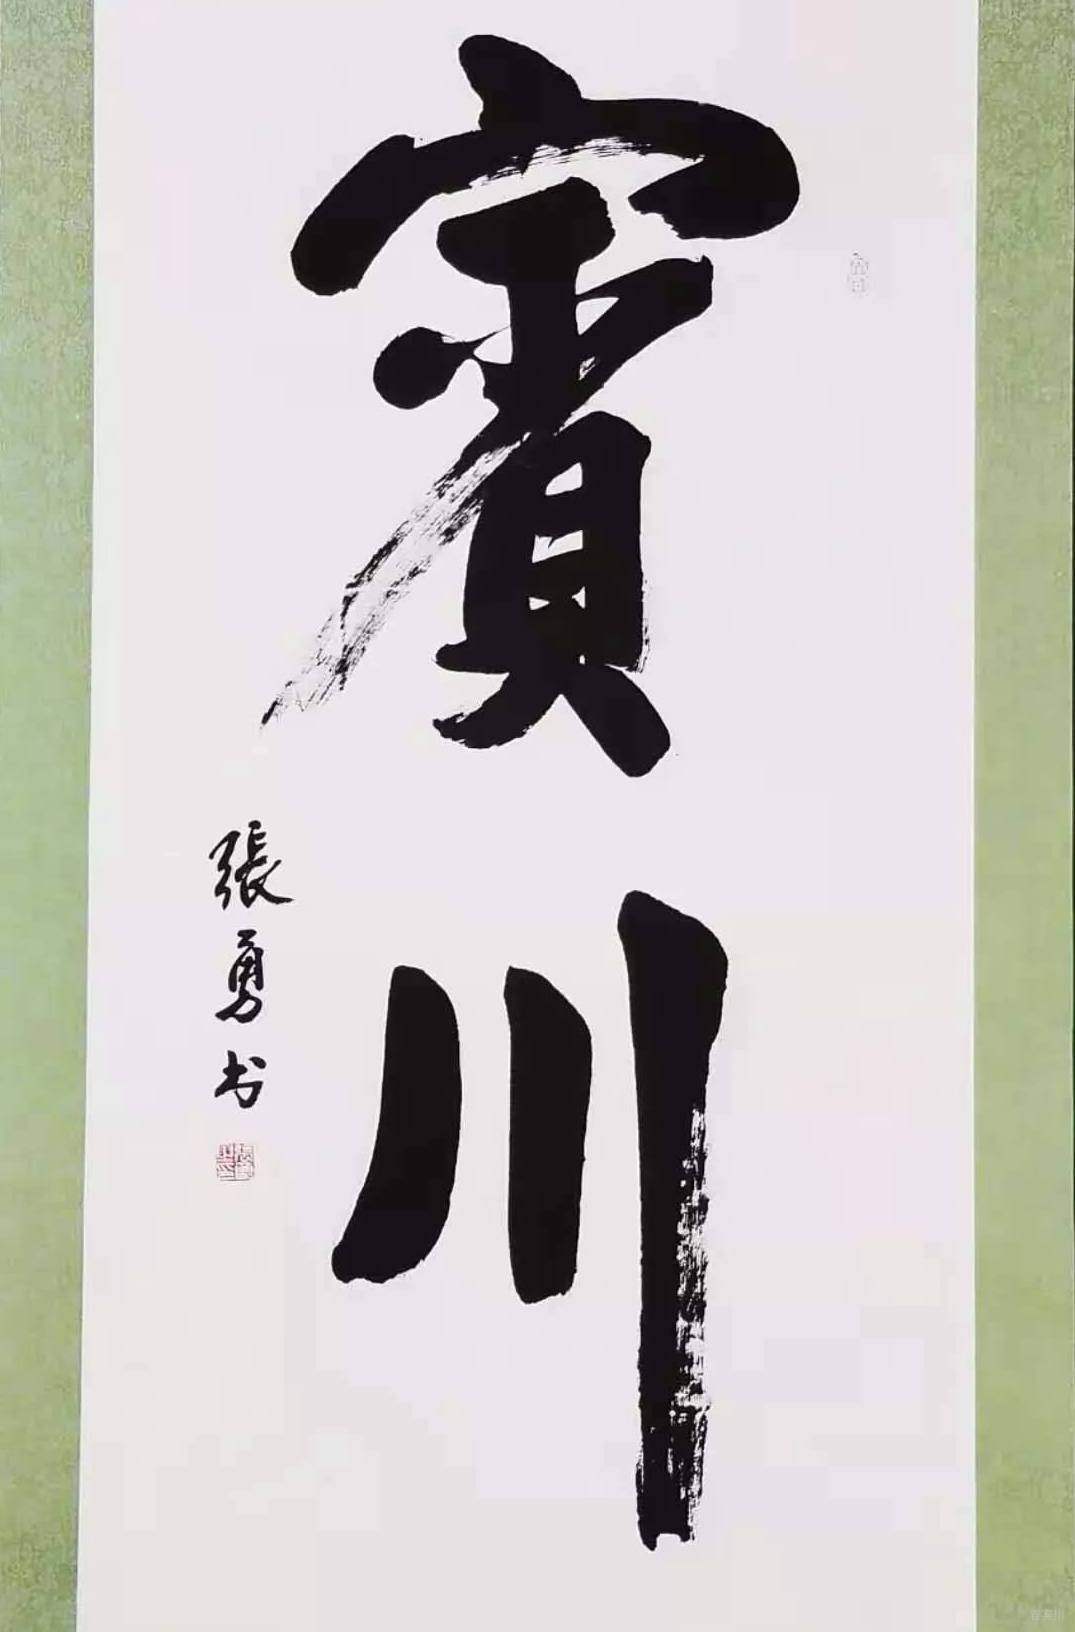 賓川
張勇书